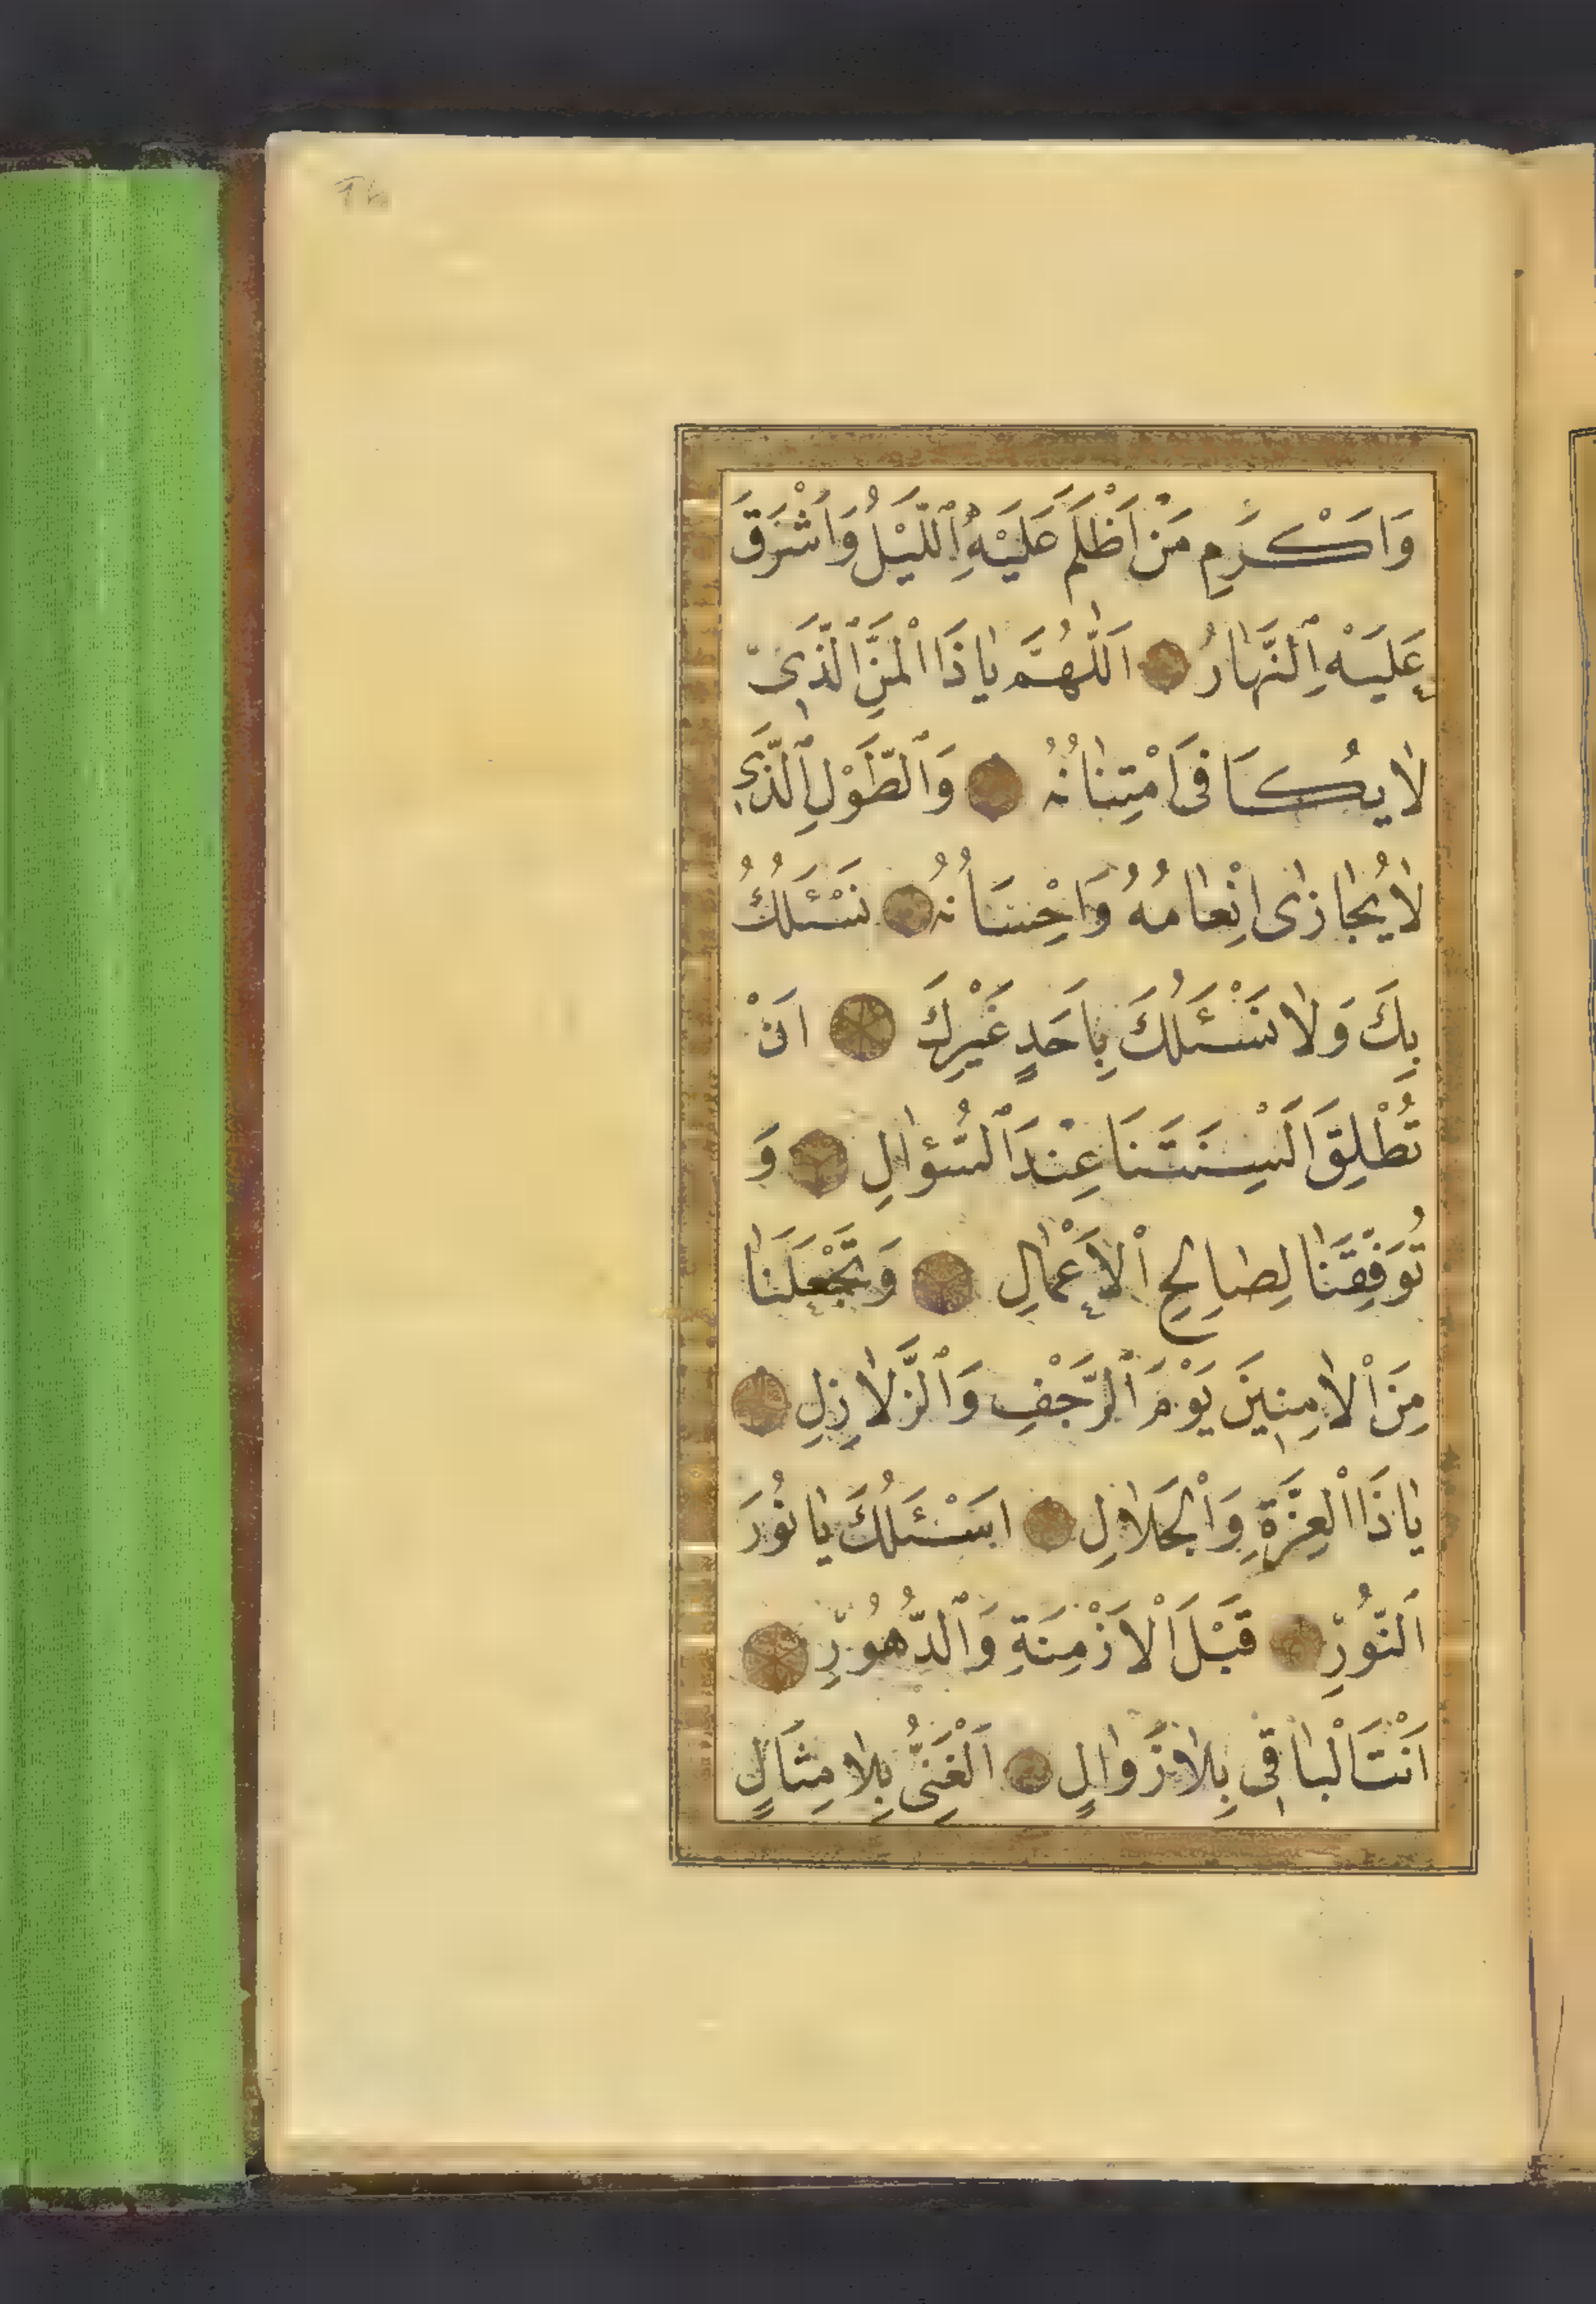 وَاَكْرَمِ مَنْ اَظْلَمَ عَلَيْهِ ٱللَّيْلُ وَاَشْرَقَ
عَلَيْهِ ٱلنَّهَارُ اَللّٰهُمَّ يَاذَا ٱلْمَنِّ ٱلَّذِى
لَا يُكَافَى امْتِنَانُهُ وَٱلطَّوْلِ ٱلَّذِى
لَا يُجَازٰى اِنْعَامُهُ وَاِحْسَانُهُ نَسْئَلُكَ
بِكَ وَلَا نَسْئَلُكَ بِاَحَدٍ غَيْرِكَ اَنْ
تُطْلِقَ اَلْسِنَتَنَا عِنْدَ ٱلسُّؤَالِ وَ
تُوَفِّقَنَا لِصَالِحِ ٱلْاَعْمَالِ وَتَجْعَلَنَا
مِنَ ٱلْاٰمِنِينَ يَوْمَ ٱلرَّجْفِ وَٱلزَّلَازِلِ
يَاذَا ٱلْعِزَّةِ وَٱلْجَلَالِ اَسْئَلُكَ يَا نُورَ
ٱلنُّورِ قَبْلَ ٱلْاَزْمِنَةِ وَٱلدُّهُورِ
اَنْتَ ٱلْبَاقِى بِلَا زَوَالٍ اَلْغَنِىُّ بِلَا مِثَالٍ